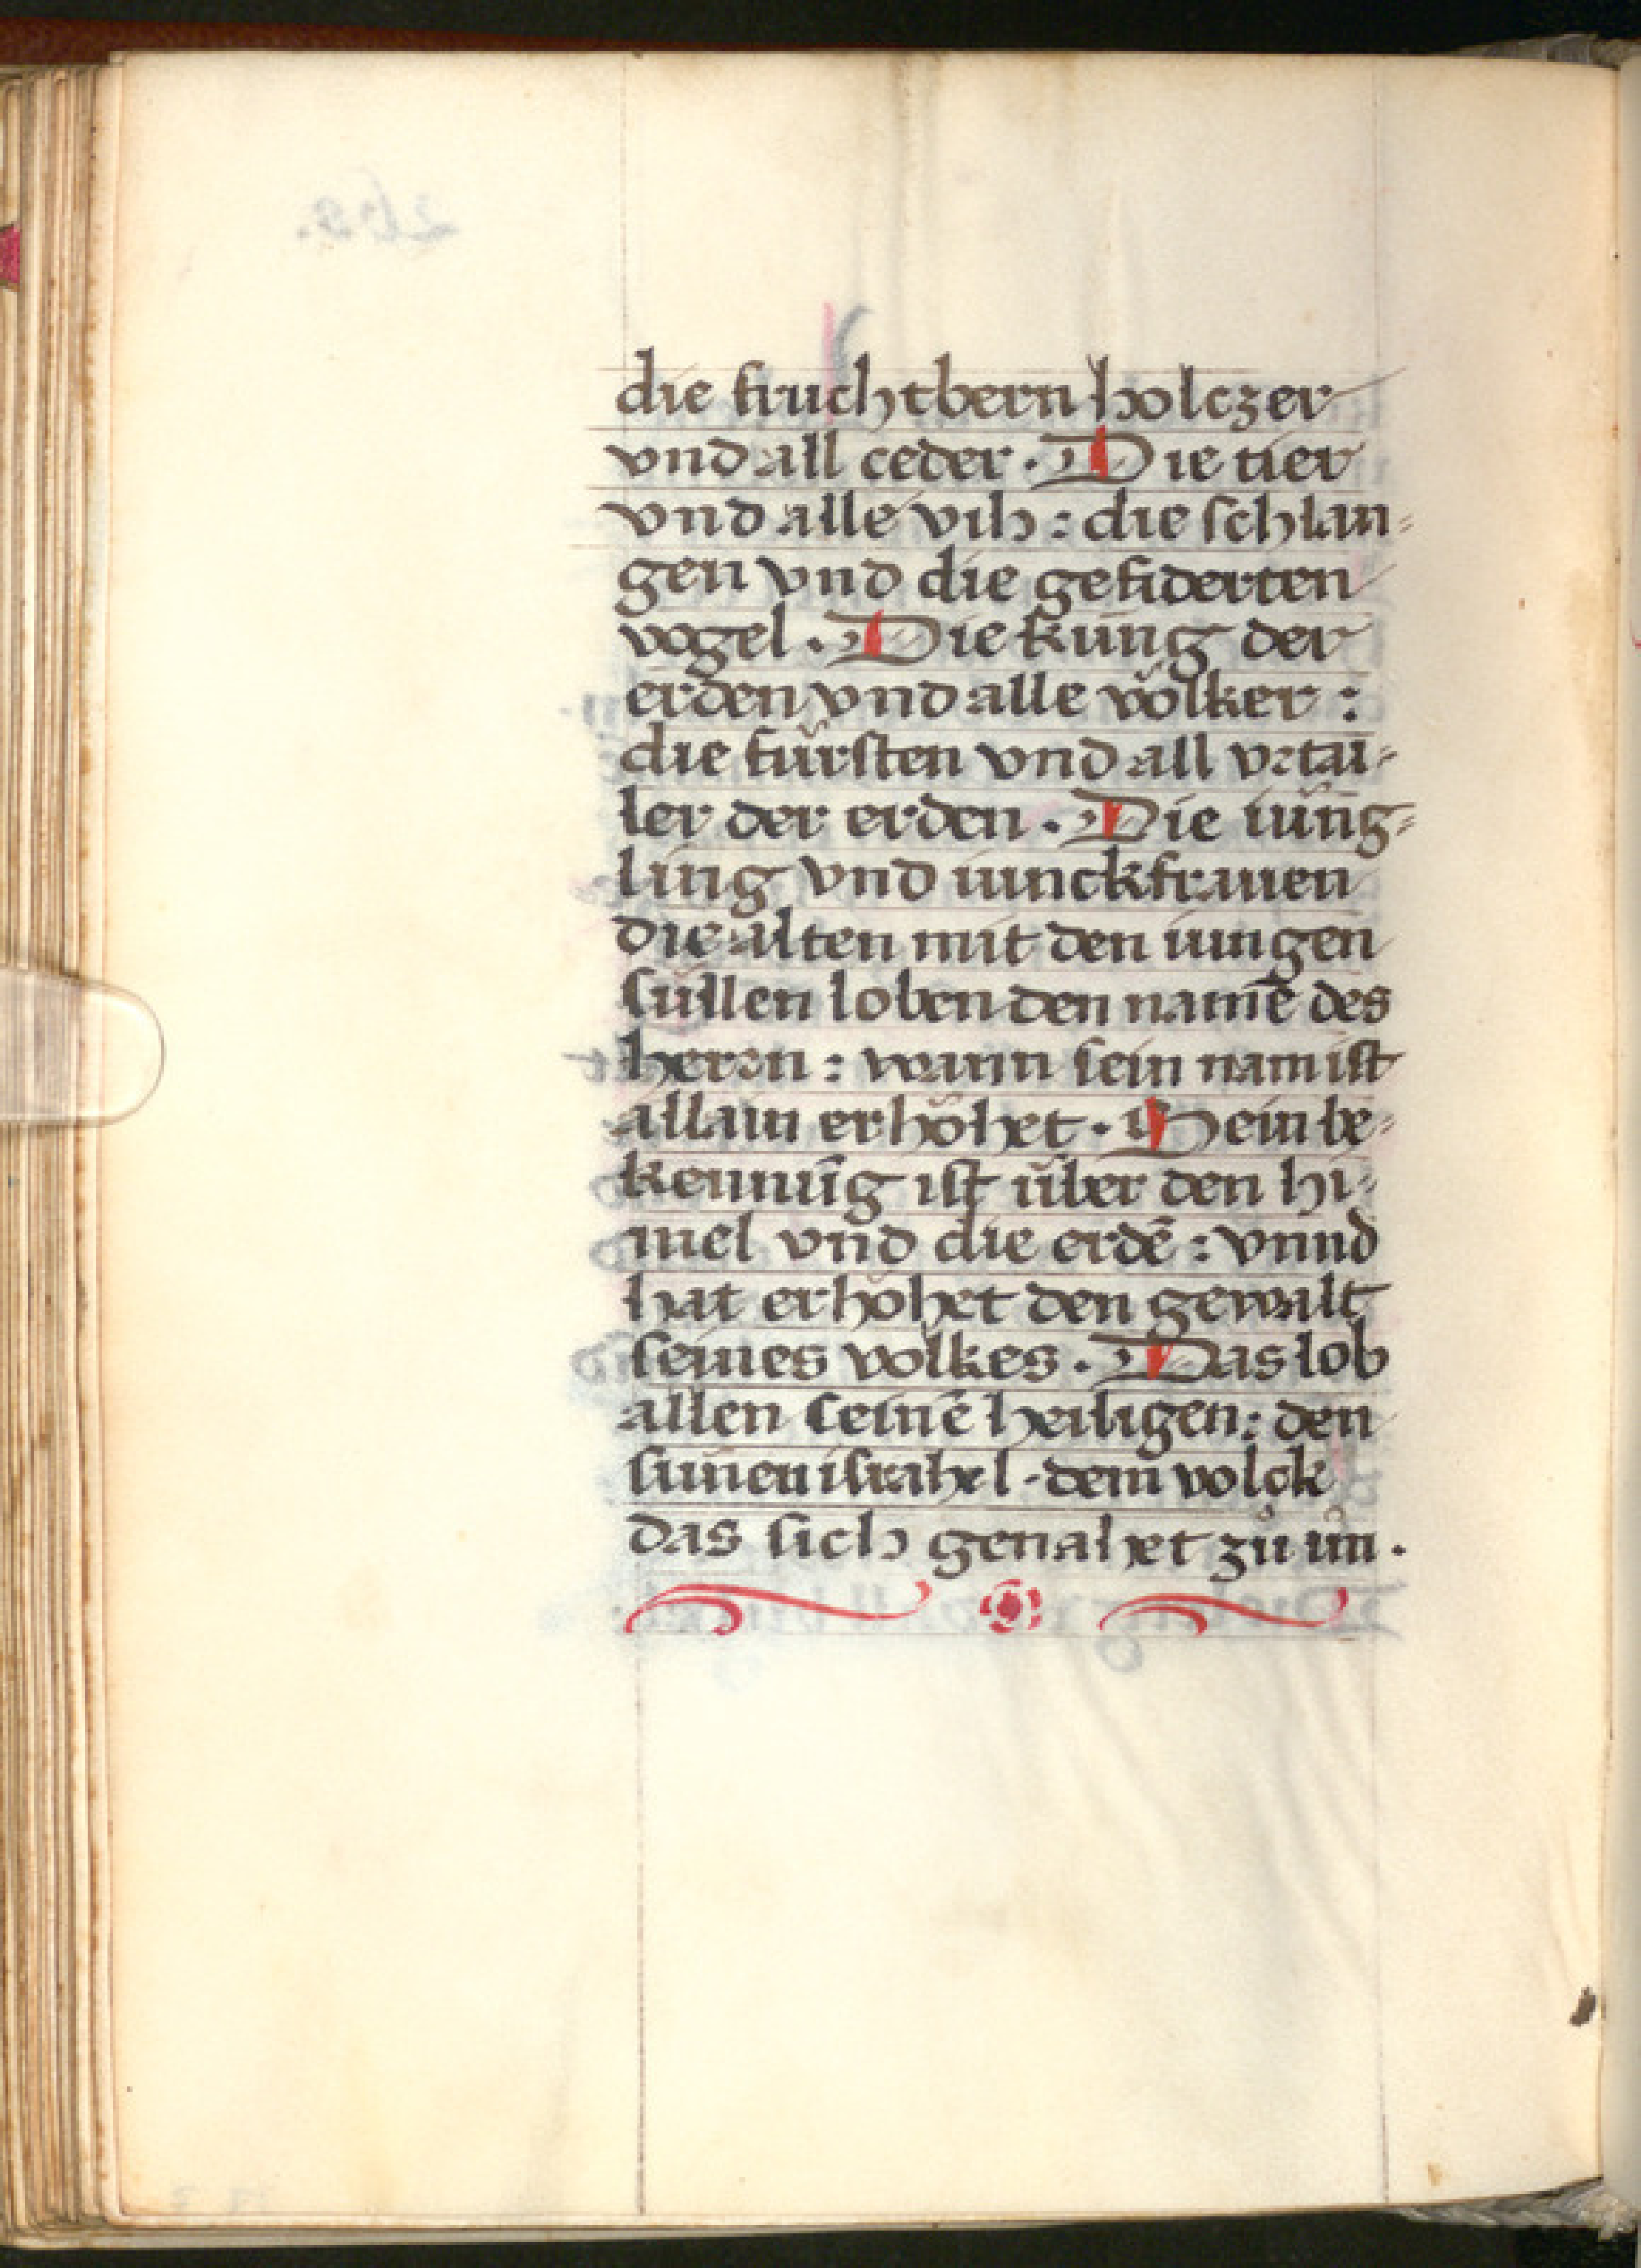 die fruchtbern holczer
vnd all ceder · Die tier
vnd alle vih : die schlan⸗
gen vnd die gefiderten
vogel · Die kung der
erden vnd alle völker :
die fürsten vnd all vrtai⸗
ler der erden · Die iüng⸗
ling vnd iunckfrauen
die alten mit den iungen
süllen loben den namē des
herrn : wann sein nam ist
allain erhöhet · Sein be⸗
kennūg ist über den hi⸗
mel vnd die erdē : vnnd
hat erhöhet den gewalt
seines volkes · Das lob
allen seinē heiligen : den
sunen israhel · dem volck
das sich genahet zů im ·